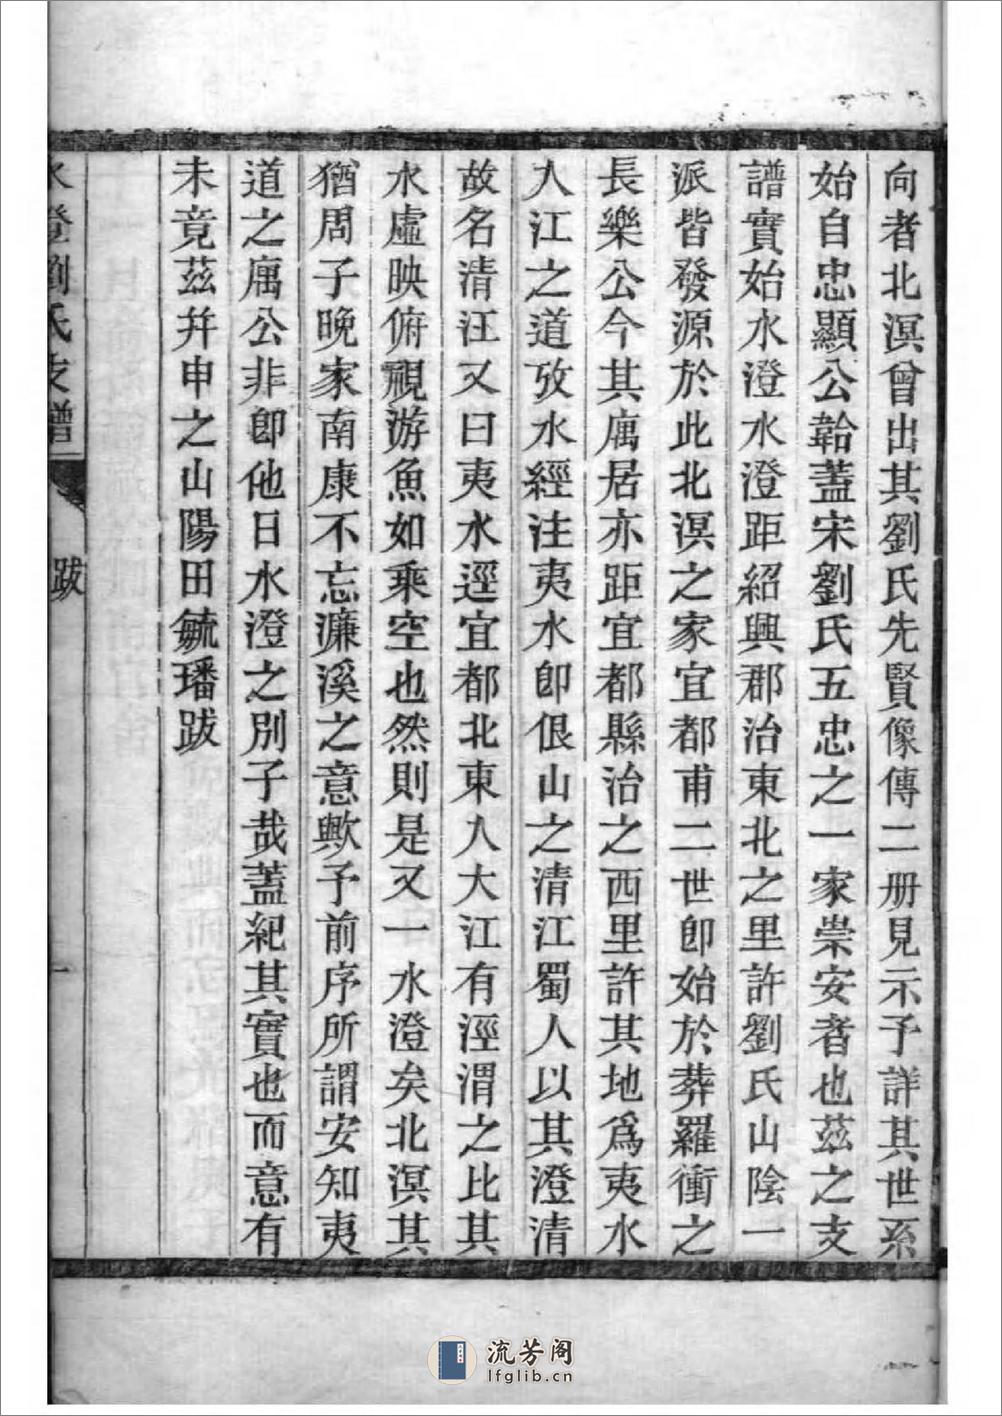 向者北溟曾出其劉氏先賢像傳二册見示予詳其世系
始自忠顯公韐蓋宋劉氏五忠之一家崇安者也茲之支
譜實始水澄水澄距紹興郡治東北之里許劉氏山陰一
派皆發源於此北溟之家宜都甫二世卽始於葬羅衝之
長樂公今其庽居亦距宜都縣治之西里許其地爲夷水
入江之道攷水經注夷水卽佷山之清江蜀人以其澄清
故名清汪又曰夷水逕宜都北東入大江有涇渭之比其
水虛映俯視游魚如乘空也然則是又一水澄矣北溟其
猶周子晚家南康不忘濂溪之意歟予前序所謂安知夷
道之庽公非卽他日水澄之別子哉蓋紀其實也而意有
未竟茲幷申之山陽田毓璠跋
水澄劉氏支譜 跋 一
流芳阁
lfglib.cn